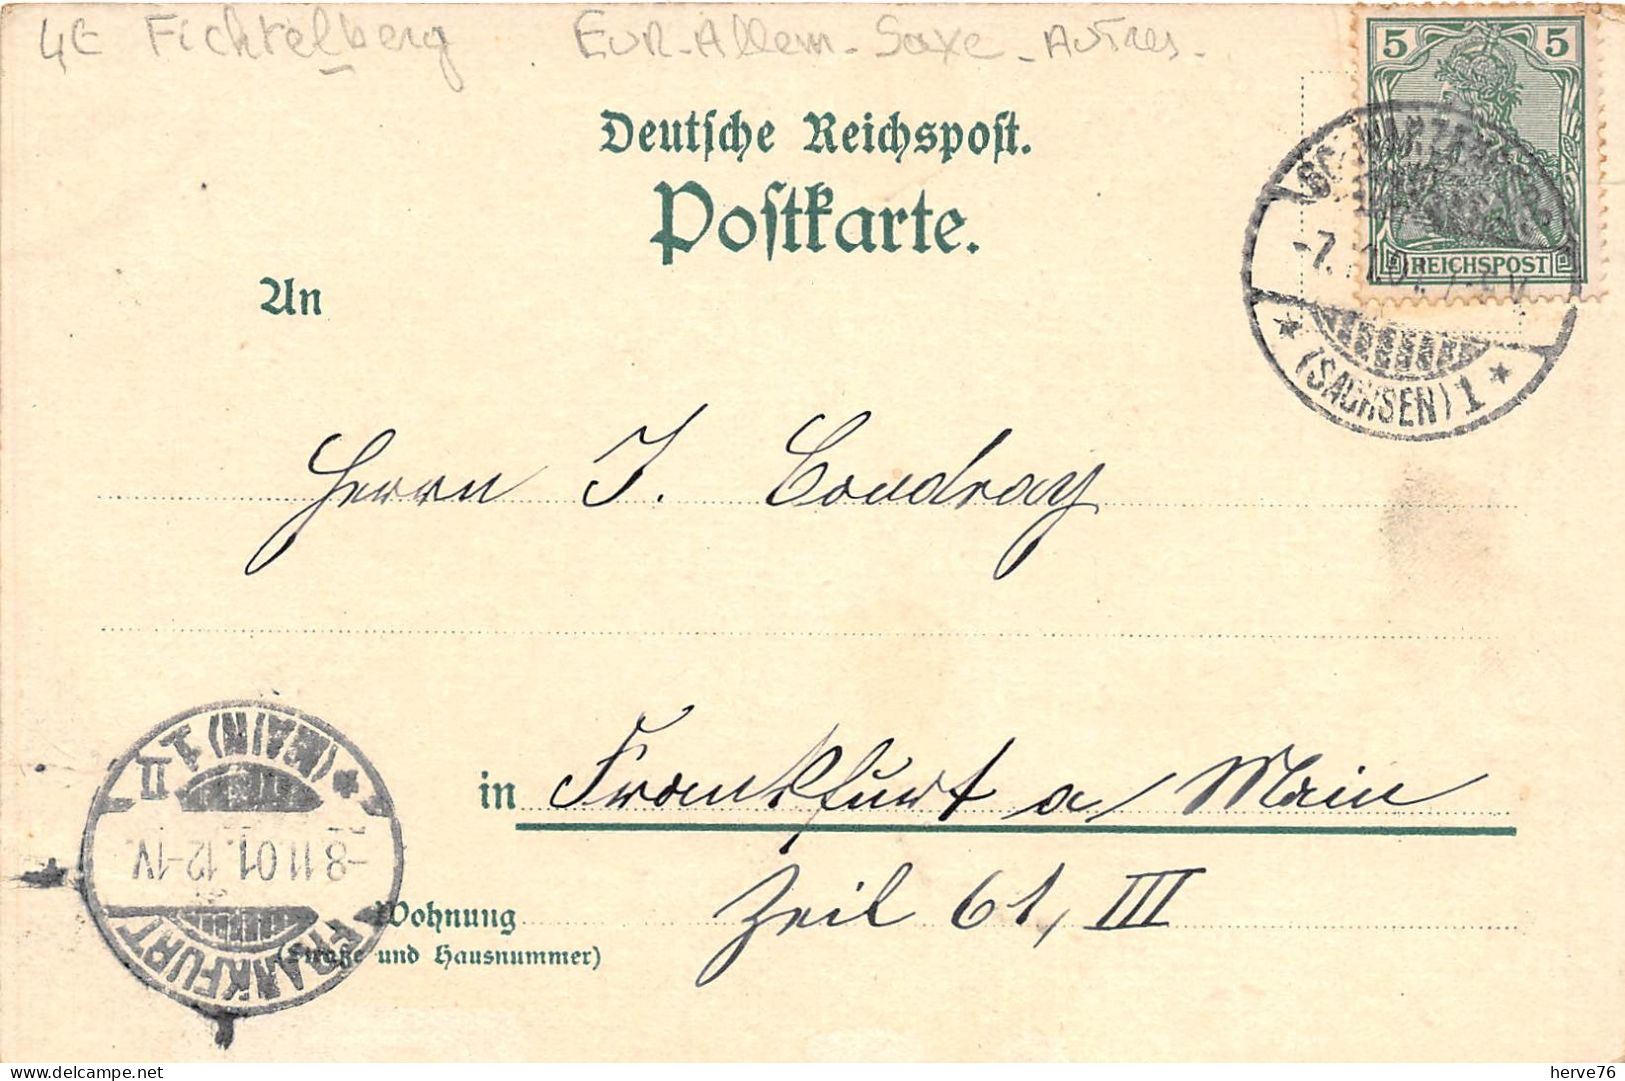 4€ Fichtelberg EUR-Allem-Saxe-Autres-
5 5
Deutsche Reichspost.
Postkarte.
REICHSPOST
An
(SACHSEN) 1
Herrn J. Coudray
(MAIN) 1 II
in Frankfurt a Main
-8.11.01.12-1V.
FRANKFURT
Zeil 61, III
Wohnung
(Straße und Hausnummer)
herve76